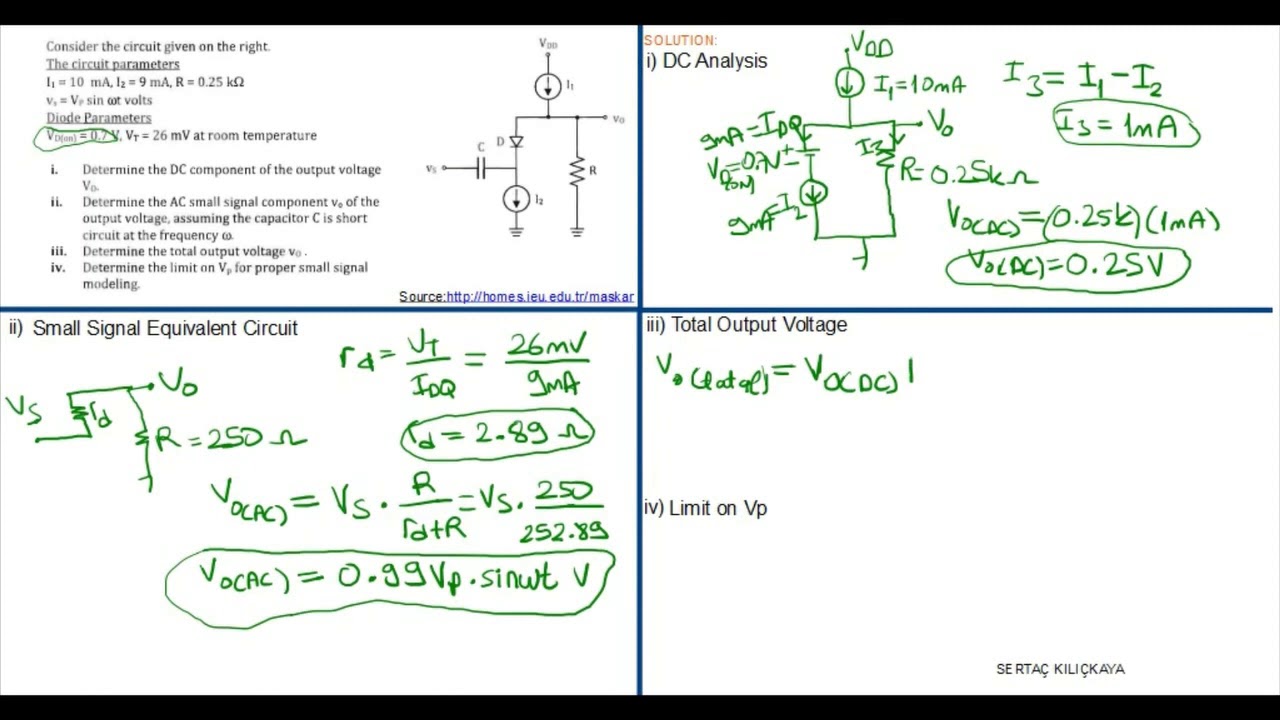 Consider the circuit given on the right.
The circuit parameters
I₁ = 10 mA, I₂ = 9 mA, R = 0.25 kΩ
vₛ = Vₚ sin ωt volts
Diode Parameters
V_D(on) = 0.7 V, V_T = 26 mV at room temperature
i. Determine the DC component of the output voltage
V₀.
ii. Determine the AC small signal component v₀ of the
output voltage, assuming the capacitor C is short
circuit at the frequency ω.
iii. Determine the total output voltage v₀ .
iv. Determine the limit on Vₚ for proper small signal
modeling.
V_DD
I₁
v₀
D
C
vₛ
R
I₂
Source:http://homes.ieu.edu.tr/maskar
SOLUTION:
i) DC Analysis
V_DD
I₁=10mA
9mA=I_DQ
V₀
V_D=0.7V + -
(ON)
I₃
R=0.25kΩ
9mA=I₂
I₃ = I₁ - I₂
I₃ = 1mA
V_O(DC) = (0.25k)(1mA)
V_O(DC) = 0.25V
ii) Small Signal Equivalent Circuit
V_S
r_d
V₀
R = 250 Ω
r_d = V_T / I_DQ = 26mV / 9mA
r_d = 2.89 Ω
V_O(AC) = V_S . R / r_d+R = V_S . 250 / 252.89
V_O(AC) = 0.99Vp.sinwt V
iii) Total Output Voltage
V_o(total) = V_O(DC)
iv) Limit on Vp
SERTAÇ KILIÇKAYA